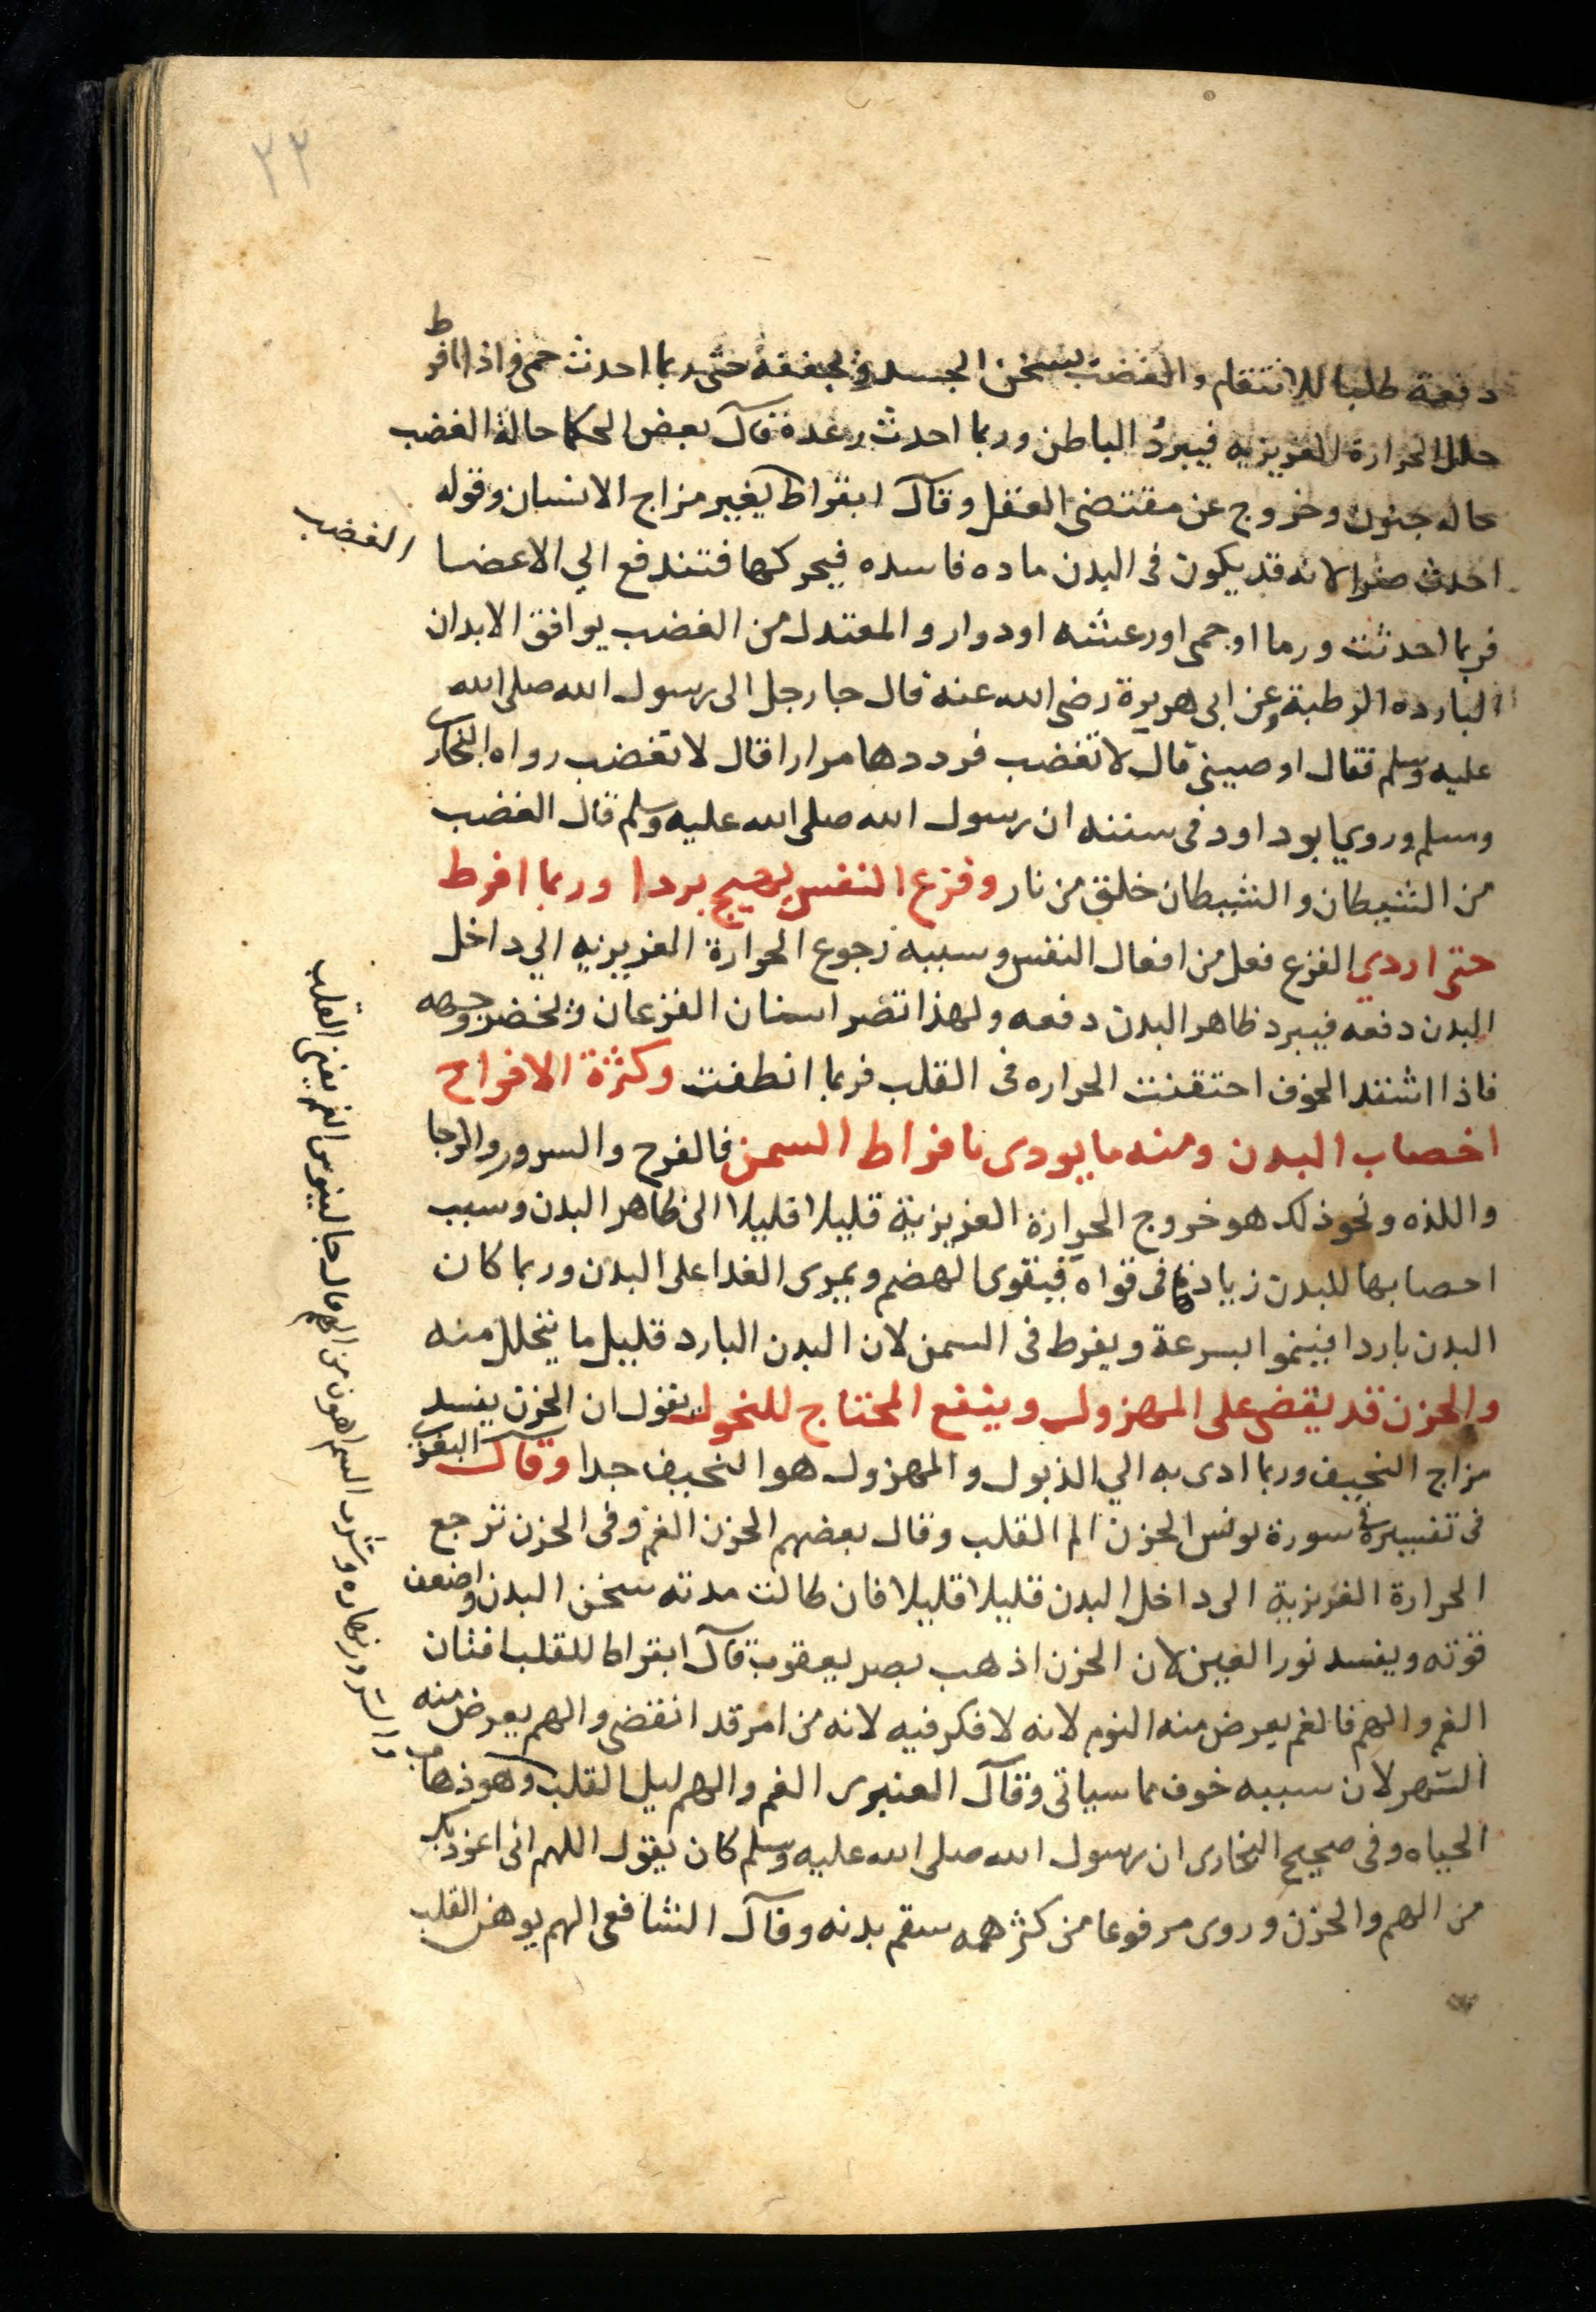 ٢٢
دفعة طلبا للانتقام والغضب يسخن الجسد ويجففه حتى ربما احدث حمى واذا افرط
حلل الحرارة الغريزيه فيبردُ الباطن وربما احدث رعدة قال بعض الحكما حالة الغضب
حاله جنون وخروج عن مقتضى العقل وقال ابقراط يغير مزاج الانسان وقوله
الغضب
احدث ضرا لانه قد يكون فى البدن ماده فاسده فيحركها فتندفع الي الاعضا
فربما احدثت ورما او حمى او رعشته او دوار والمعتدل من الغضب يوافق الابدان
البارده الرطبة وعن ابى هريرة رضى الله عنه قال جا رجل الى رسول الله صلى الله
عليه وسلم فقال اوصينى قال لا تغضب فرددها مرارا قال لا تغضب رواه البخارى
ومسلم وروي ابو داود فى سننه ان رسول الله صلى الله عليه وسلم قال الغضب
من الشيطان والشيطان خلق من نار وفزع النفس يهيج بردا وربما افرط
حتى اردي الفزع فعل من افعال النفس وسببه رجوع الحرارة الغريزيه الي داخل
البدن دفعه فيبرد ظاهر البدن دفعه ولهذا تضر اسنان الفزعان ويخضر وجهه
فاذا اشتد الخوف احتقنت الحراره فى القلب فربما انطفت وكثرة الافراح
اخصاب البدن ومنه ما يودى بافراط السمن فالفرح والسرور والرجا
واللذه ونحو ذلك هو خروج الحرارة الغريزية قليلا قليلا الى ظاهر البدن وسبب
احصابها للبدن زيادتها فى قواه فيقوى الهضم ويمرى الغدا على البدن وربما كان
البدن باردا فينموا بسرعة ويفرط فى السمن لان البدن البارد قليل ما يتحلل منه
والحزن قد يقضى على المهزول وينفع المحتاج للنحول يقول ان الحزن يفسد
مزاج النحيف وربما ادى به الي الذبول والمهزول هو النحيف جدا وقال البغوى
فى تفسيره فى سورة يونس الحزن الم القلب وقال بعضهم الحزن الغم وفى الحزن ترجع
الحرارة الغريزية الى داخل البدن قليلا قليلا فان طالت مدته سخن البدن واضعف
قوته ويفسد نور العين لان الحزن اذهب بصر يعقوب قال ابقراط للقلب افتان
الغم والهم فالغم يعرض منه النوم لانه لا فكر فيه لانه من امر قد انقضى والهم يعرض منه
السهر لان سببه خوف مما سياتى وقال العنبرى الغم والهم ليل القلب وهو ذهاب
الحياه وفى صحيح البخارى ان رسول الله صلى الله عليه وسلم كان يقول اللهم انى اعوذ بك
من الهم والحزن وروى مرفوعا من كثر همه سقم بدنه وقال الشافعى الهم يوهن القلب
والسرور نهاره وشرب السم اهون من الهم قال جالينوس الغم يفنى القلب